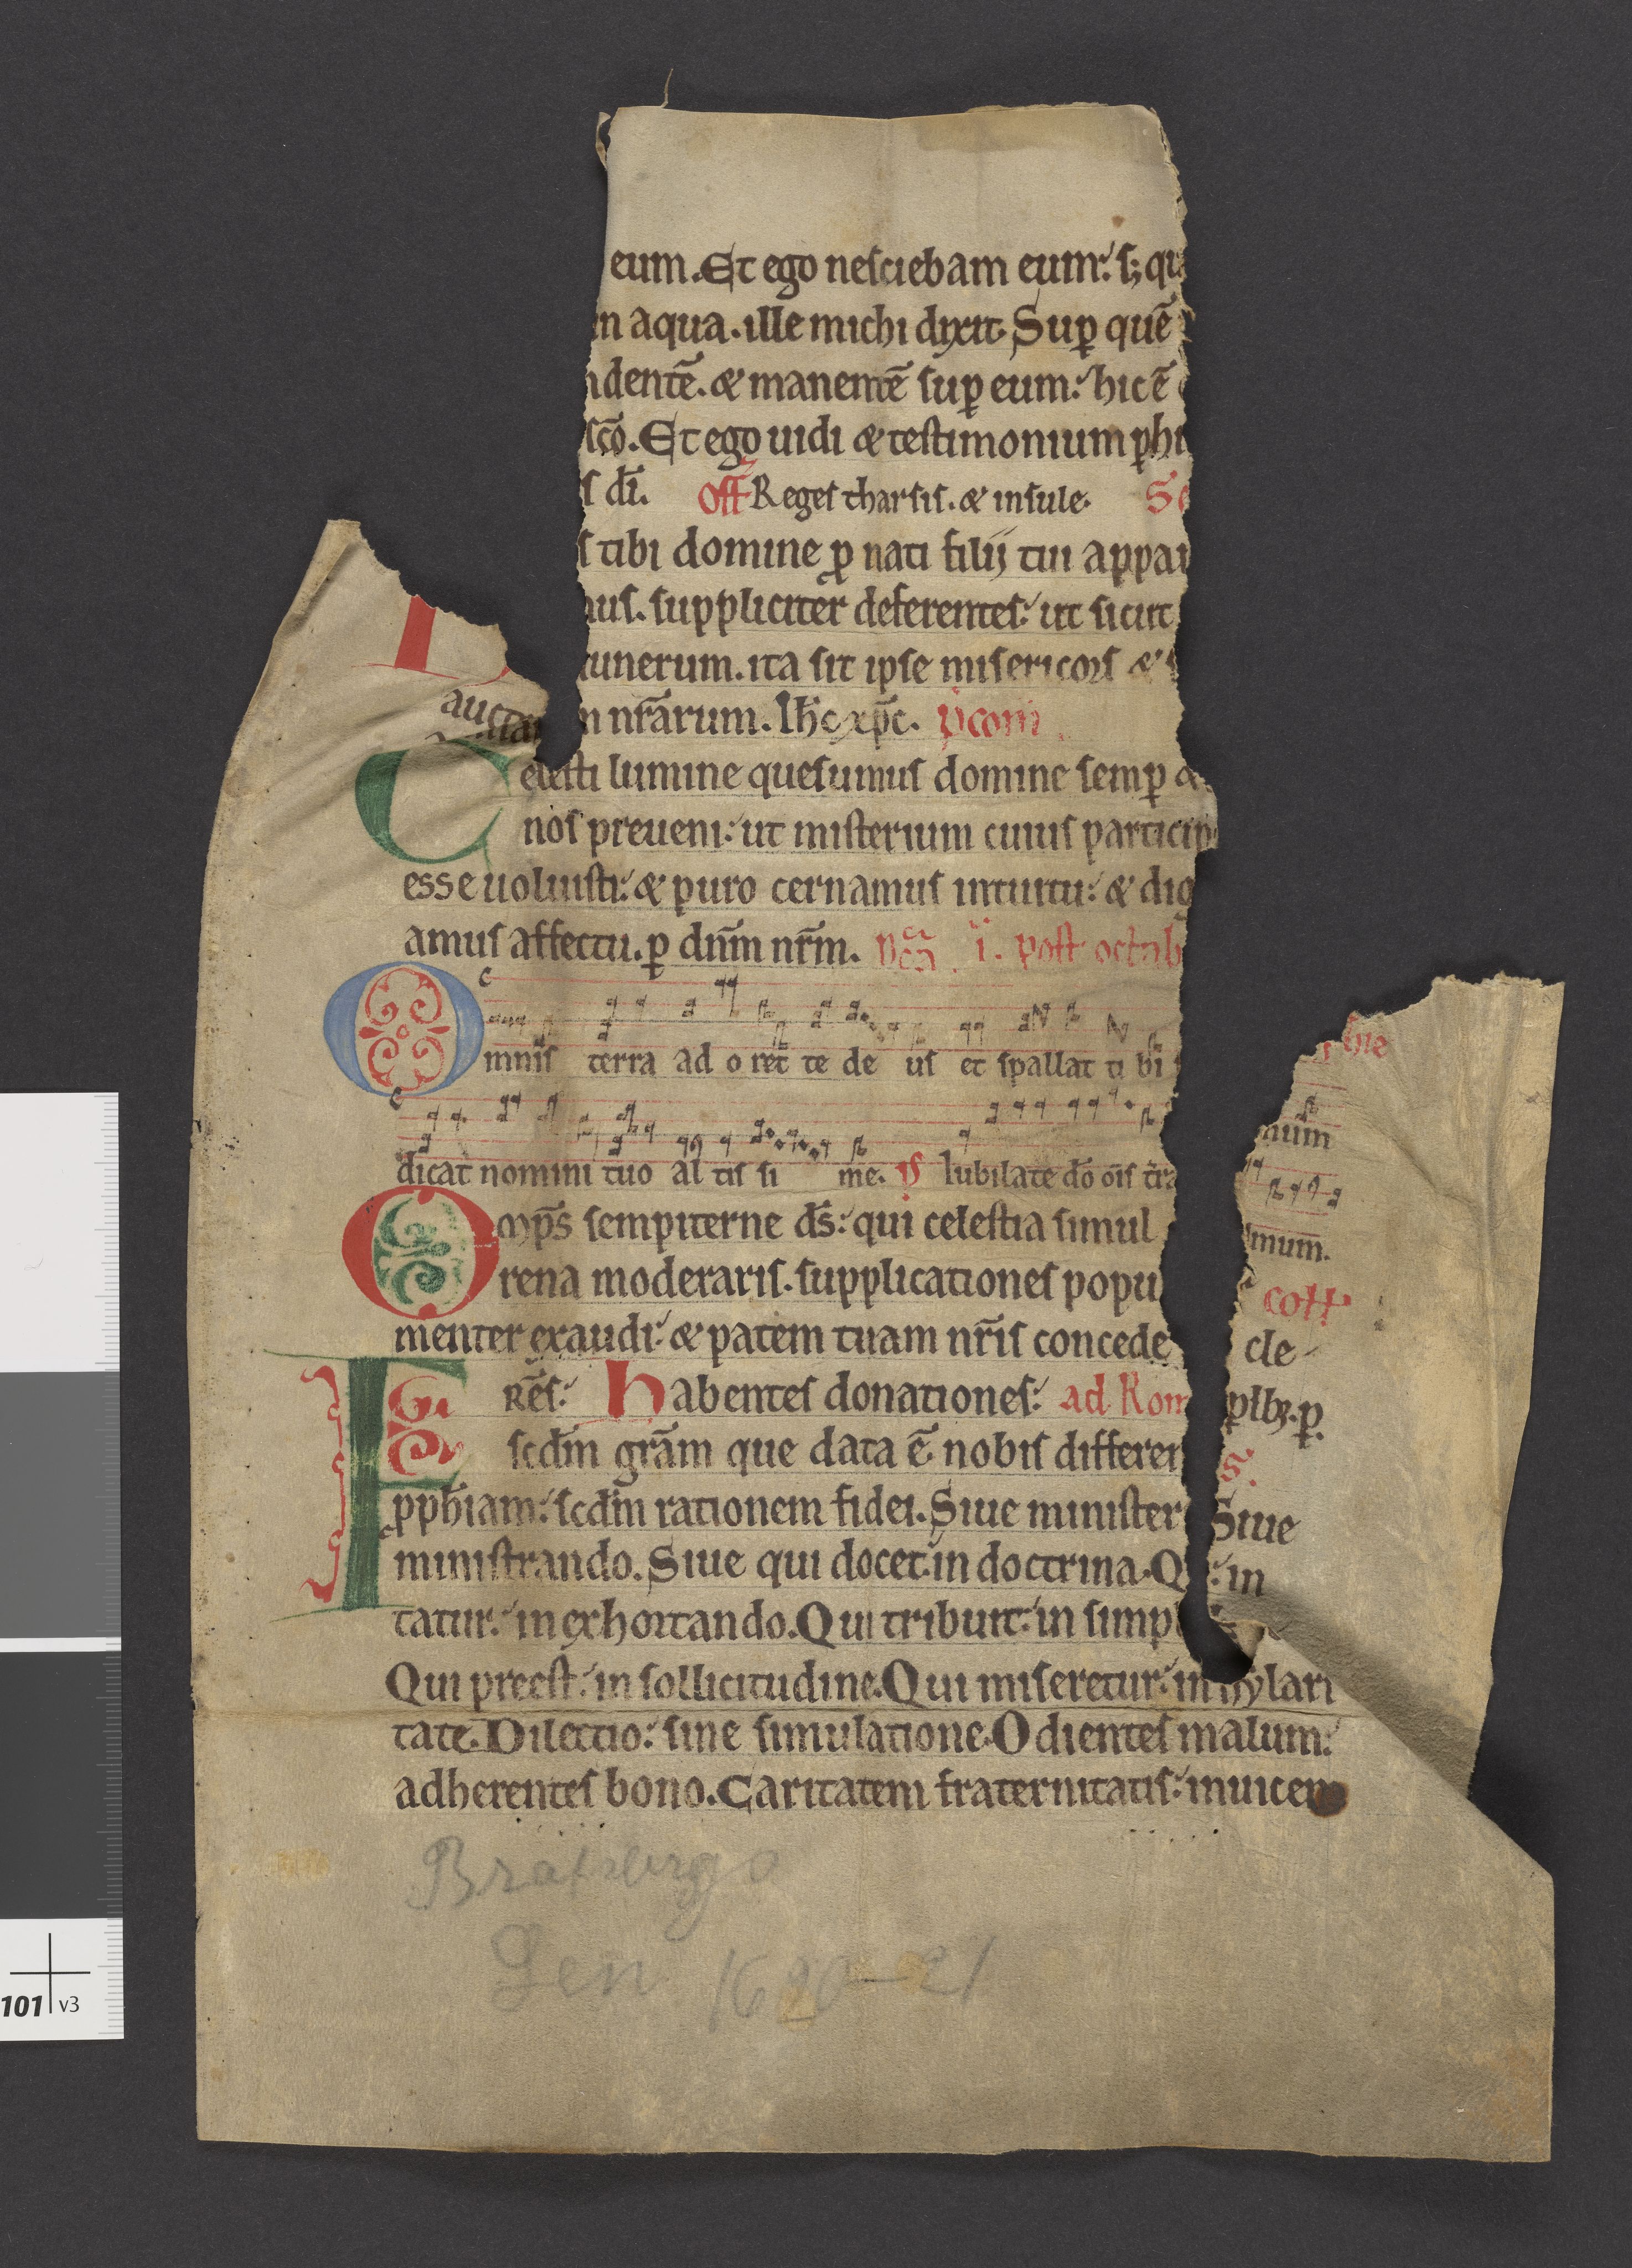 eum. Et ego nesciebam eum: s; qu
in aqua. ille michi dixit. Sup̱ quē
ndentē. & manentē sup̱ eum: hic ē
sc̄o. Et ego uidi & testimonium ꝑhi
s dī. Off Reges tharsis. & insule. Se
s tibi domine ꝓ nati filij tui appar
us. suppliciter deferentes: ut sicut
unerum. ita sit ipse misericors &
auctor n nr̄arum. Ih̄c xp̄c. pcom
Celesti lumine quesumus domine semꝑ &
nos preueni: ut misterium cuius particip
esse uoluisti: & puro cernamus intuitu: & dig
amus affectu. ꝑ dn̄m nr̄m. i. post octab
Omnis terra ad o ret te de us et spallat ti bi
dicat nomini tuo al tis si me. ps Iubilate dō oīs t̄ra
num
mum.
Omp̄s sempiterne ds̄: qui celestia simul coll
rena moderaris. supplicationes popu cle
menter exaudi: & pacem tuam nr̄is concede ꝑlbꝫ. ꝑ.
FRēs: habentes donationes: ad Rom s.
scdm̄ grām que data ē nobis differen Siue
pph̄iam: scdm̄ rationem fidei. Siue minister : in
ministrando. Siue qui docet: in doctrina. Q
tatur: in exhortando. Qui tribuit: in simpl
Qui preest: in sollicitudine. Qui miseretur: in hylari
tate. Dilectio: sine simulatione. Odientes malum:
adherentes bono. Caritatem fraternitatis: inuicem
Bratzbergs
Len 1620-21